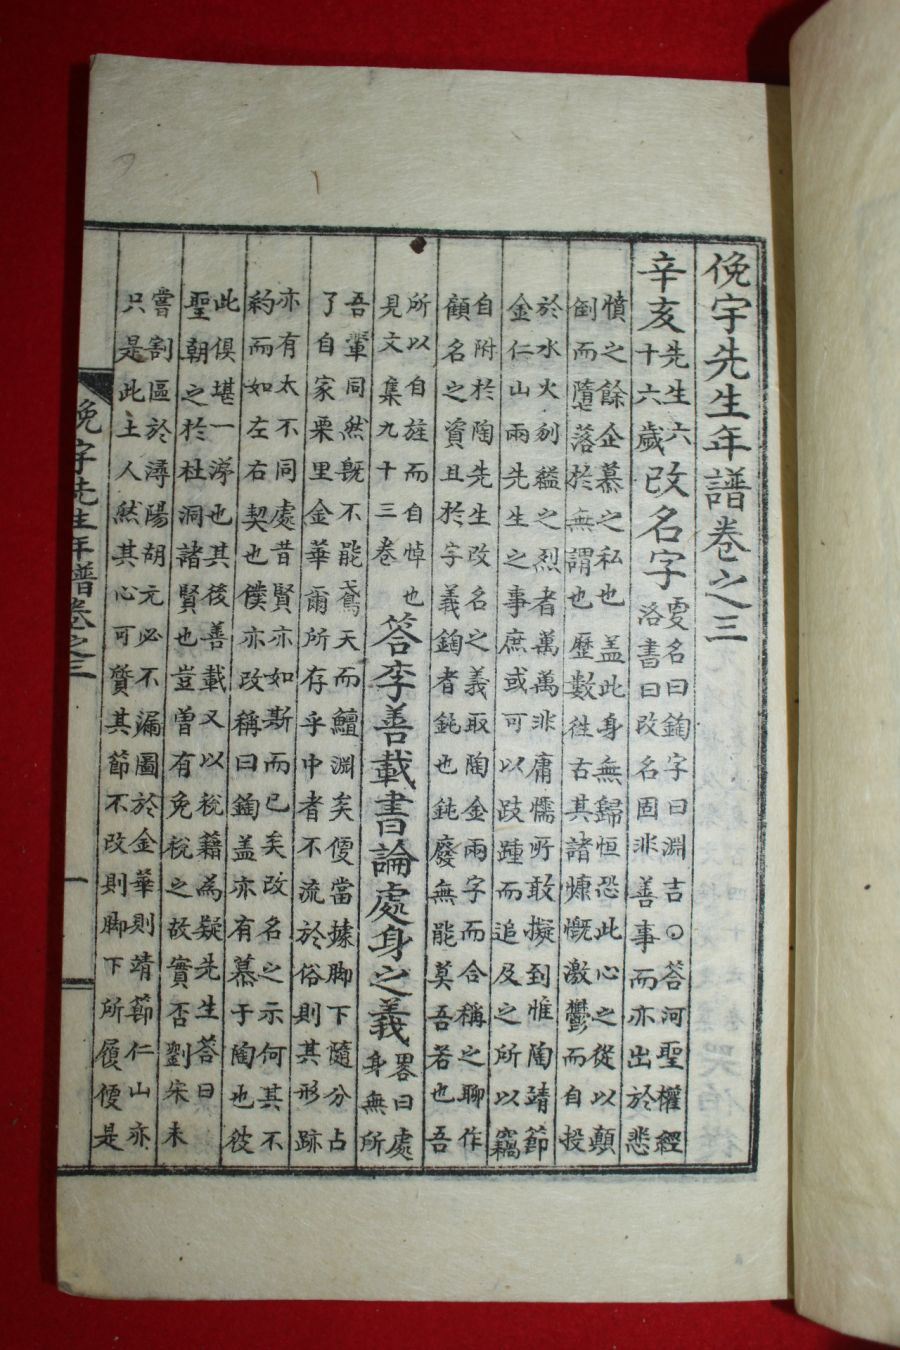 俛宇先生年譜卷之三
辛亥先生六十六歲改名字更名曰鋾字曰淵吉○答河聖權經
洛書曰改名固非善事而亦出於悲
憤之餘企慕之私也盖此身無歸恒恐此心之從以顛
倒而墮落於無謂也歷數徃古其諸慷慨激鬱而自投
於水火刎縊之烈者萬萬非庸懦所敢擬到惟陶靖節
金仁山兩先生之事庶或可以跂踵而追及之所以竊
自附於陶先生改名之義取陶金兩字而合稱之聊作
顧名之資且於字義鋾者鈍也鈍廢無能莫吾若也吾
所以自旌而自悼也
見文集九十三卷答李善載書論處身之義畧曰處
身無所
吾輩同然旣不能鳶天而鱣淵矣便當據脚下隨分占
了自家栗里金華爾所存乎中者不流於俗則其形跡
亦有太不同處昔賢亦如斯而已矣改名之示何其不
約而如左右契也僕亦改稱曰鋾盖亦有慕于陶也彼
此俱堪一渧也其後善載又以稅籍為疑先生答曰
聖朝之於杜洞諸賢也豈曽有免稅之故實否劉宋未
嘗割區於潯陽胡元必不漏圖於金華則靖節仁山亦
只是此土人然其心可質其節不改則脚下所履便是
俛宇先生年譜卷之三
一